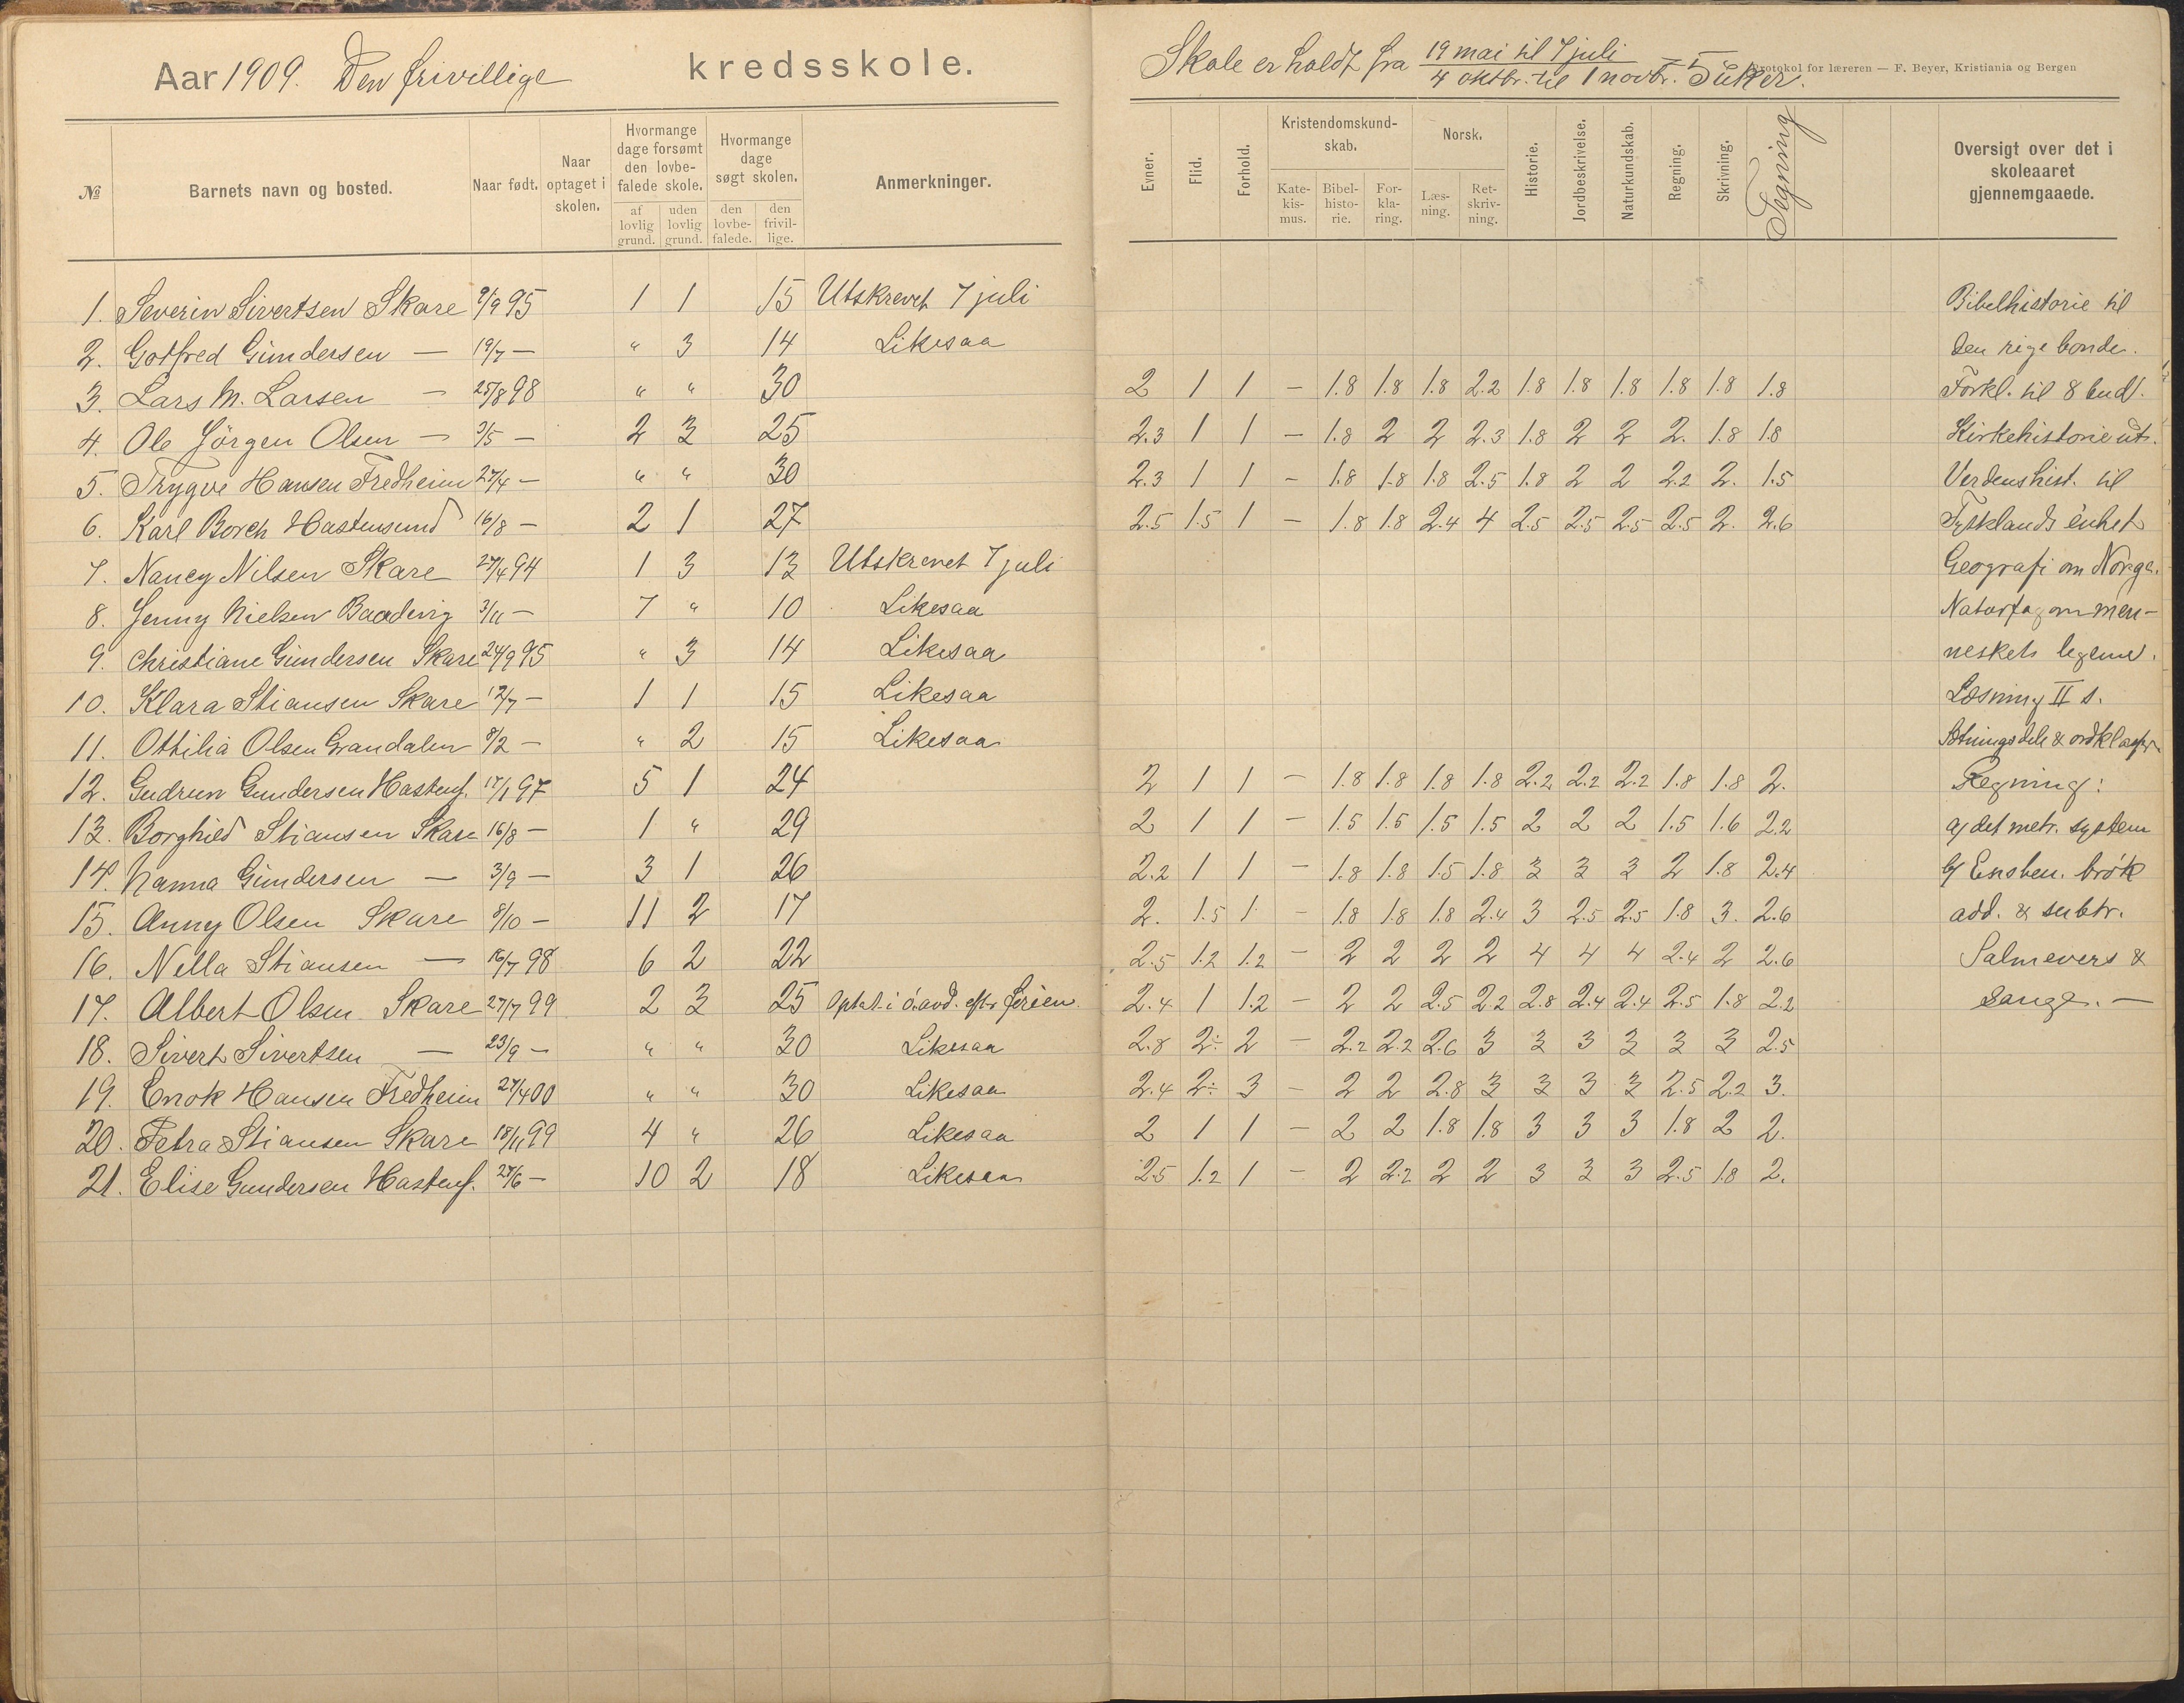 Aar 1909. Den frivillige kredsskole.
Skole er holdt fra 19 mai til 7 juli
4 oktbr. til 1 novbr. = 5 uker.
Protokol for læreren — F. Beyer, Kristiania og Bergen
№ Barnets navn og bosted. Naar født. Naar optaget i skolen. Hvormange dage forsømt den lovbefalede skole. af lovlig grund. uden lovlig grund. Hvormange dage søgt skolen. den lovbefalede. den frivillige. Anmerkninger.
Evner. Flid. Forhold. Kristendomskundskab. Katekismus. Bibelhistorie. Forklaring. Norsk. Læsning. Retskrivning. Historie. Jordbeskrivelse. Naturkundskab. Regning. Skrivning. Tegning Oversigt over det i skoleaaret gjennemgaaede.
1. Severin Sivertsen Skare 9/9 95 1 1 15 Utskrevet 7 juli Bibelhistorie til
2. Gotfred Gundersen — 19/7 — " 3 14 Likesaa Den rige bonde.
3. Lars M. Larsen — 25/8 98 " " 30 2 1 1 — 1.8 1.8 1.8 2.2 1.8 1.8 1.8 1.8 1.8 1.8 Forkl. til 8 bud.
4. Ole Jörgen Olsen — 3/5 — 2 3 25 2.3 1 1 — 1.8 2 2 2.3 1.8 2 2 2. 1.8 1.8 Kirkehistorie ut.
5. Trygve Hansen Fredheim 27/4 — " " 30 2.3 1 1 — 1.8 1.8 1.8 2.5 1.8 2 2 2.2 2. 1.5 Verdenshist. til
6. Karl Borch Hastensund 16/8 — 2 1 27 2.5 1.5 1 — 1.8 1.8 2.4 4 2.5 2.5 2.5 2.5 2. 2.6 Tysklands enhet
7. Nancy Nilsen Skare 27/4 94 1 3 13 Utskrevet 7 juli Geografi om Norge.
8. Jenny Nielsen Baadevig 3/11 — 7 " 10 Likesaa Naturfag om men-
9. Christiane Gundersen Skare 24/9 95 " 3 14 Likesaa neskets legeme.
10. Klara Stiansen Skare 12/7 — 1 1 15 Likesaa Læsning II s.
11. Ottilia Olsen Grandalen 8/2 — " 2 15 Likesaa Sætningsdele & ordklasser
12. Gudrun Gundersen Hastens. 17/1 97 5 1 24 2 1 1 — 1.8 1.8 1.8 1.8 2.2 2.2 2.2 1.8 1.8 2. Regning:
13. Borghild Stiansen Skare 16/8 — 1 " 29 2 1 1 — 1.5 1.5 1.5 1.5 2 2 2 1.5 1.6 2.2 a/ det metr. system
14. Nanna Gundersen — 3/9 — 3 1 26 2.2 1 1 — 1.8 1.8 1.5 1.8 3 3 3 2 1.8 2.4 b/ Ensben. brök
15. Anny Olsen Skare 8/10 — 11 2 17 2. 1.5 1 — 1.8 1.8 1.8 2.4 3 2.5 2.5 1.8 3. 2.6 add. & subtr.
16. Nella Stiansen — 16/7 98 6 2 22 2.5 1.2 1.2 — 2 2 2 2 4 4 4 2.4 2 2.6 Salmevers &
17. Albert Olsen Skare 27/7 99 2 3 25 Optat. i ö. avd. eftr ferien. 2.4 1 1.2 — 2 2 2.5 2.2 2.8 2.4 2.4 2.5 1.8 2.2 sange. —
18. Sivert Sivertsen — 23/9 — " " 30 Likesaa 2.8 2÷ 2 — 2.2 2.2 2.6 3 3 3 3 3 3 2.5
19. Enok Hansen Fredheim 27/4 00 " " 30 Likesaa 2.4 2÷ 3 — 2 2 2.8 3 3 3 3 2.5 2.2 3.
20. Petra Stiansen Skare 18/11 99 4 " 26 Likesaa 2 1 1 — 2 2 1.8 1.8 3 3 3 1.8 2 2.
21. Elise Gundersen Hastens. 27/6 — 10 2 18 Likesaa 2.5 1.2 1 — 2 2.2 2 2 3 3 3 2.5 1.8 2.